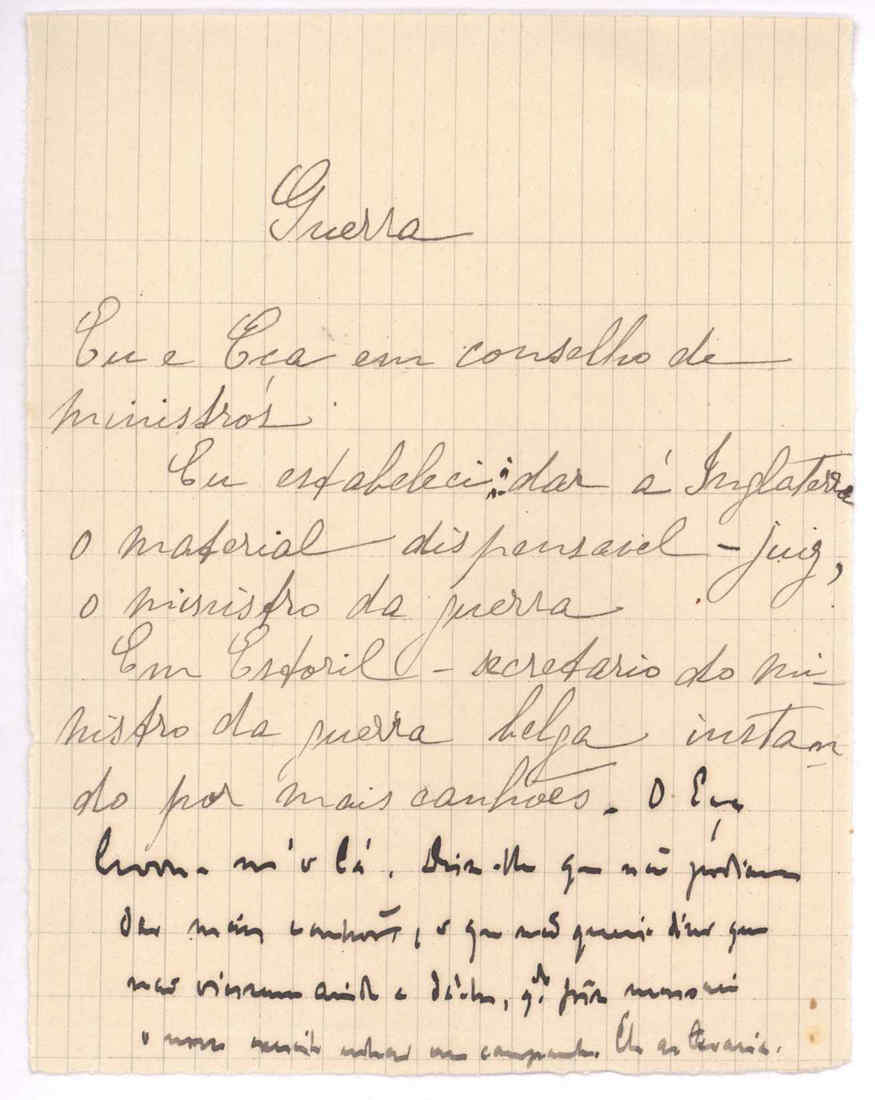 Guerra
Eu e Eça em conselho de
ministros
Eu estabeleci: dar á Inglaterra
o material dispensavel - juiz,
o ministro da guerra
Em Estoril - secretario do mi-
nistro da guerra belga instan-
do por mais canhões. O Eça
levou-m'o lá. Disse-lhe que não podiamos
dar mais canhões, o que não queria dizer que
não viessemos ainda a dá-los, q.do
o nosso